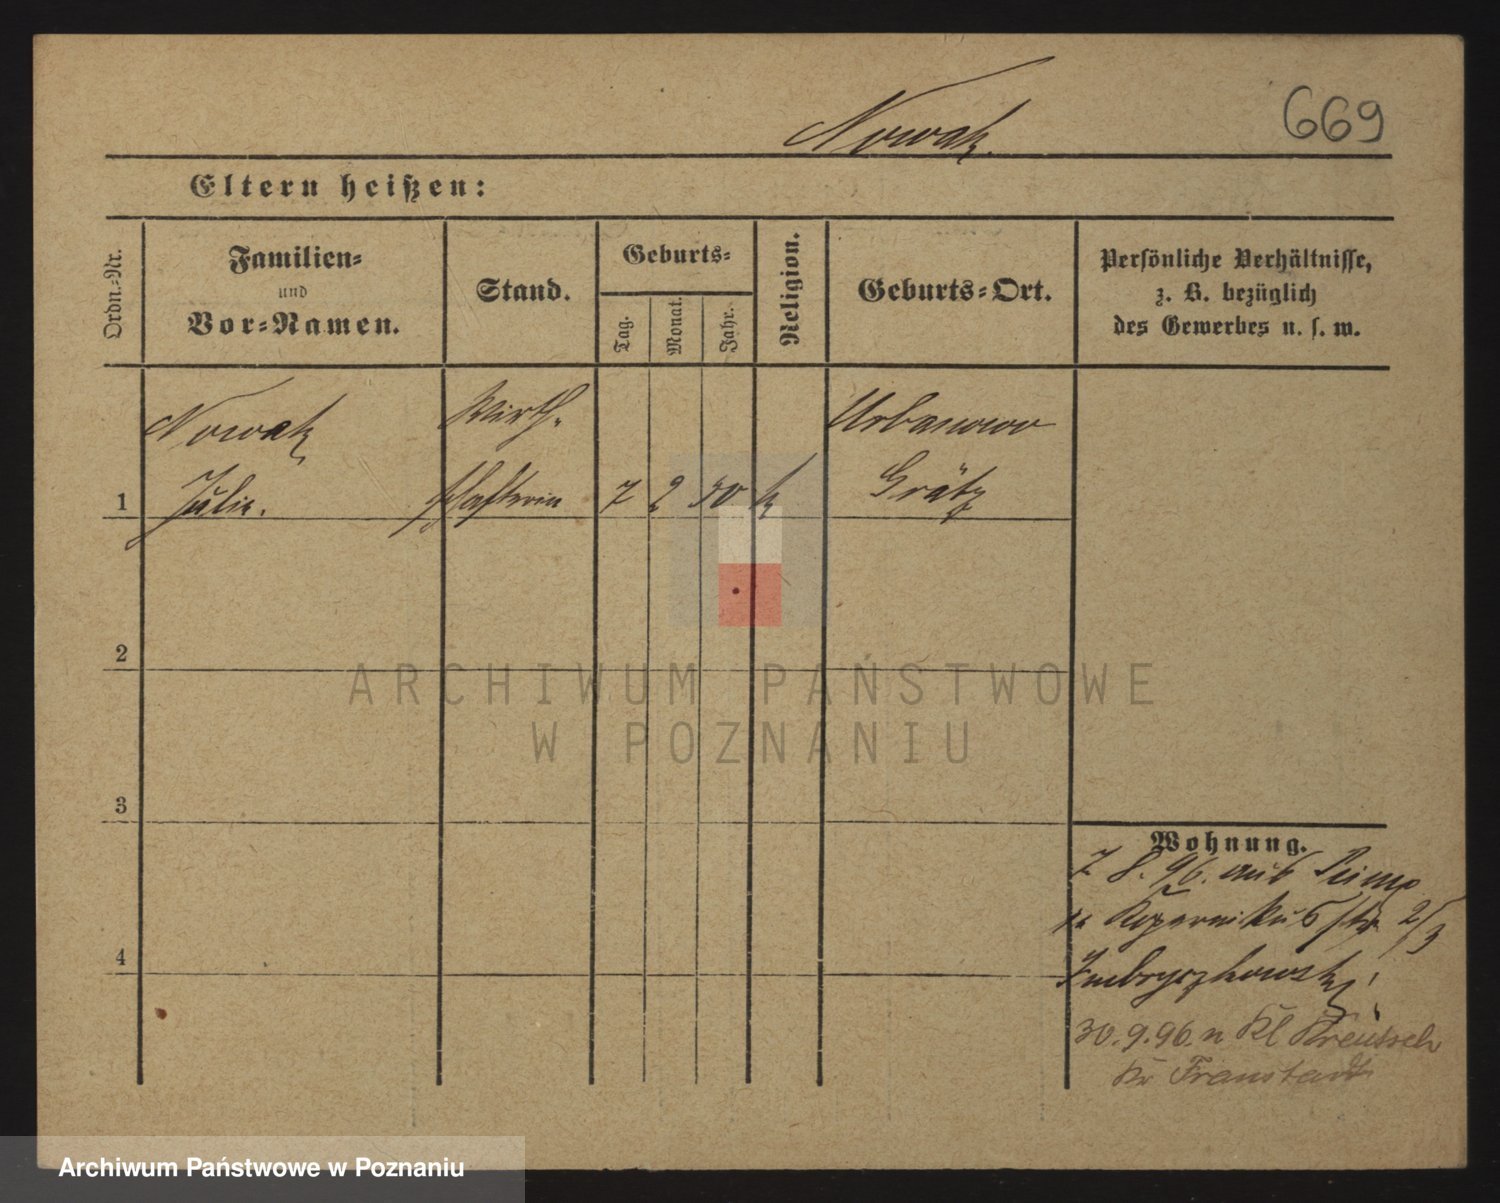 Nowak.
669
Eltern heißen:
Ordn.-Nr.
Familien-
und
Vor-Namen.
Stand.
Geburts-
Tag.
Monat.
Jahr.
Religion.
Geburts-Ort.
Persönliche Verhältnisse,
z. B. bezüglich
des Gewerbes u. s. w.
Nowak
Wirth-
Urbanowo
1
Julie.
schafterin
7
2
50
k
Grätz
2
3
4
Wohnung.
7 8. 96. aus
Kopernikus str 2/3
30.9.96. n Kl Kreutsch
Kr Fraustadt
ARCHIWUM PAŃSTWOWE
W POZNANIU
Archiwum Państwowe w Poznaniu